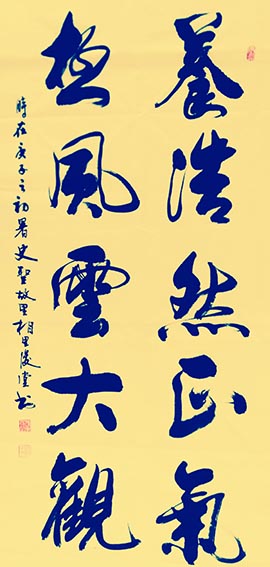 養浩然正氣
極風雲大觀
時在庚子之初暑史聖故里相里凌堂书